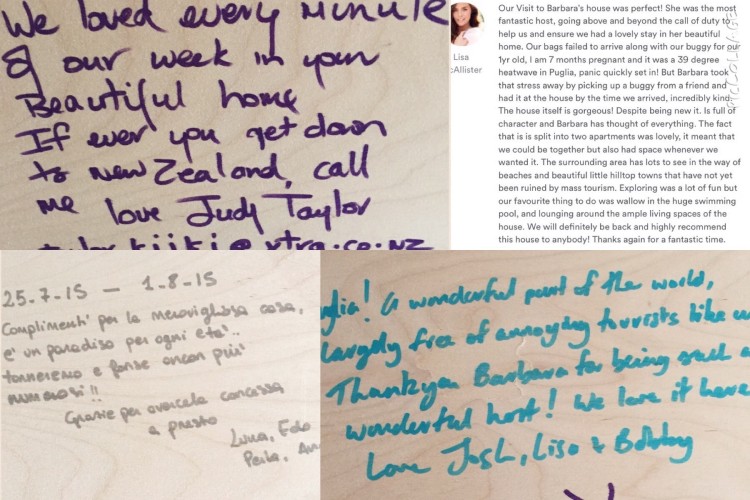 We loved every Minute
& our week in your
Beautiful home
If ever you get down
to New Zealand, call
me love Judy Taylor
Lisa
cAllister
Our Visit to Barbara's house was perfect! She was the most
fantastic host, going above and beyond the call of duty to
help us and ensure we had a lovely stay in her beautiful
home. Our bags failed to arrive along with our buggy for our
1yr old, I am 7 months pregnant and it was a 39 degree
heatwave in Puglia, panic quickly set in! But Barbara took
that stress away by picking up a buggy from a friend and
had it at the house by the time we arrived, incredibly kind.
The house itself is gorgeous! Despite being new it. Is full of
character and Barbara has thought of everything. The fact
that is is split into two apartments was lovely, it meant that
we could be together but also had space whenever we
wanted it. The surrounding area has lots to see in the way of
beaches and beautiful little hilltop towns that have not yet
been ruined by mass tourism. Exploring was a lot of fun but
our favourite thing to do was wallow in the huge swimming
pool, and lounging around the ample living spaces of the
house. We will definitely be back and highly recommend
this house to anybody! Thanks again for a fantastic time.
25.7.15 — 1.8.15
Complimenti per la meravigliosa casa,
e' un paradiso per ogni eta'..
torneremo e forse ancor più
numerosi!!
Grazie per avercela concessa
a presto
Luna, Edo
Perla,
glia! a wonderful part of the world,
largely free of annoying tourists like us
Thankyou Barbara for being such a
wonderful host! We love it here
Love Josh, Lisa &